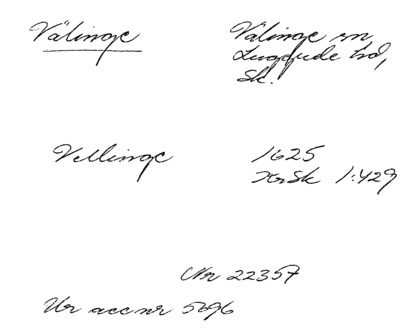 Välinge
Välinge sn
Luggude hd,
Sk.
Vellinge
1625
HrSk 1:429
Nr 22357
Ur acc nr 5696